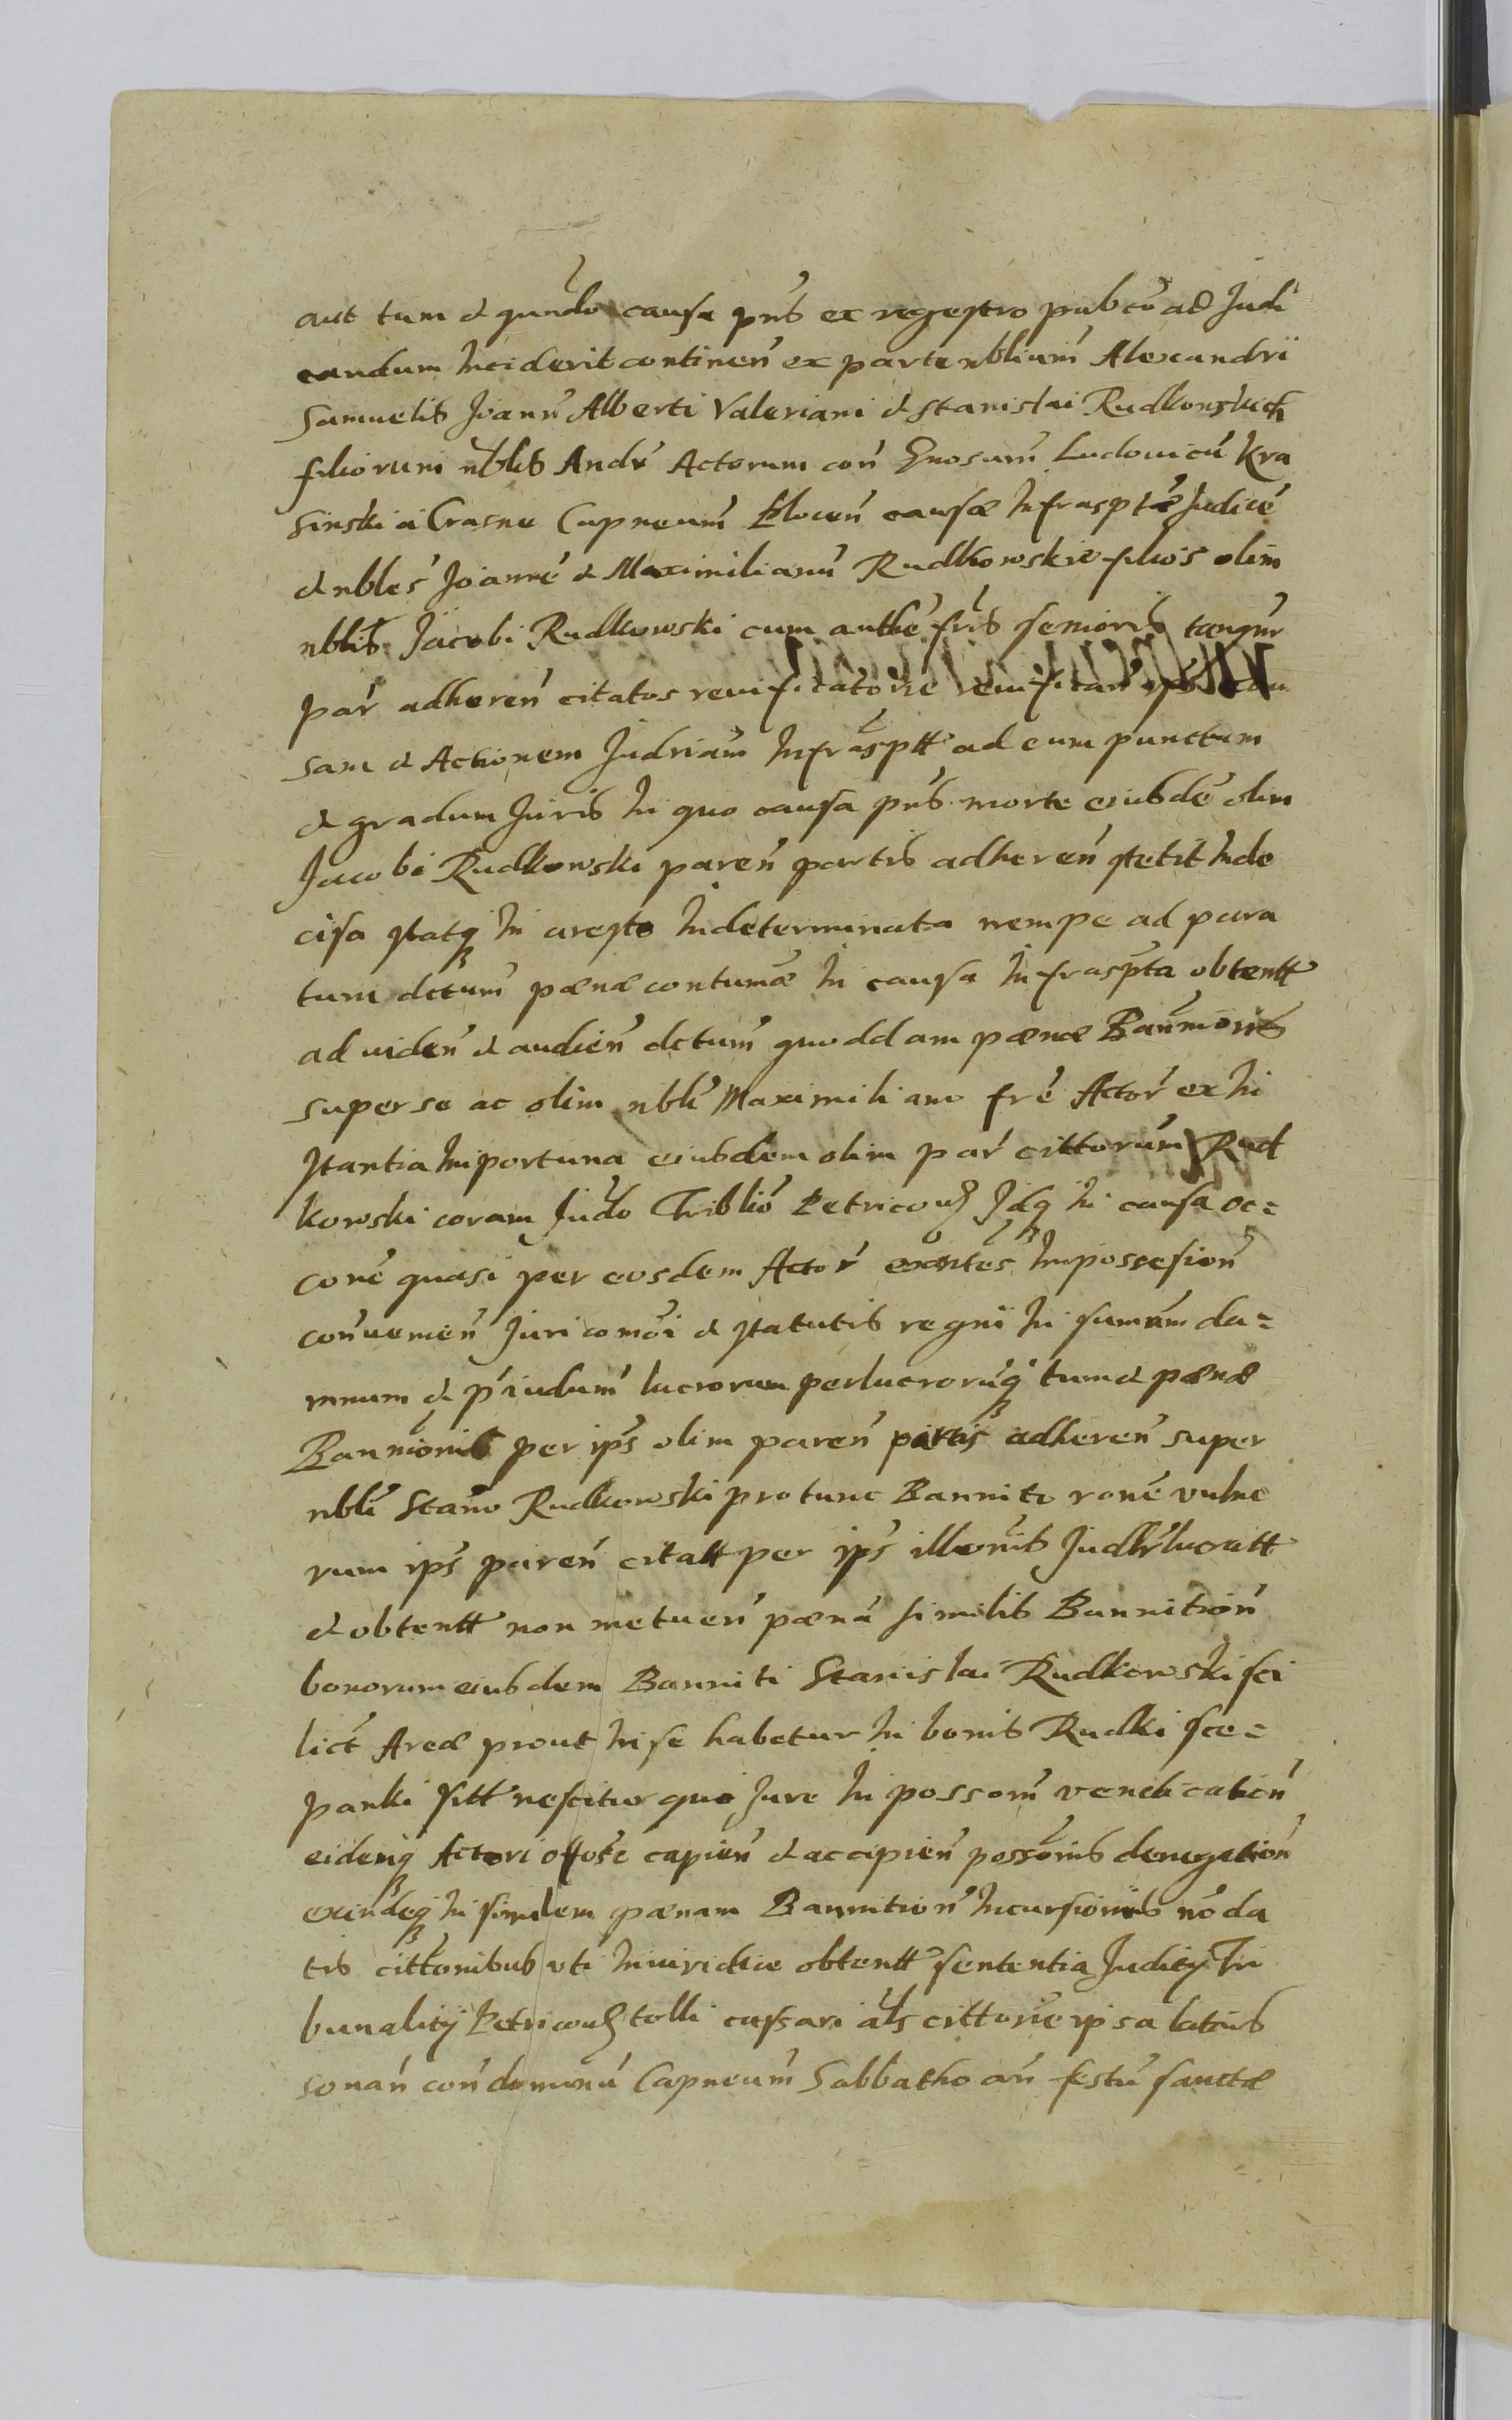 aut tum & quando causa pns ex regestro pubco ad Judi
candum Inciderit continen ex parte nblium Alexandri
Samuelis Joann Alberti Valeriani & Stanislai Rudkowskich
filiorum nblis Andr Actorum con Gnosum Ludovicu Kra
sinski a Crasne Capneum Plocen causæ Infrasptæ Judice
& nbles Joanne & Maximilianu Rudkowskie filios olim
nblis Jacobi Rudkowski cum authe fris senioris tanqur
par adheren citatos revificatorie revifican cau
sam & Actionem Judriam Infrasptt ad eum punctum
& gradum Juris In quo causa pns morte eiusde olim
Jacobi Rudkowski paren partis adheren stetit Inde
cisa statq In aresto Indeterminata nempe ad para
tum dctum pænæ contumæ In causa Infraspta obtentt
ad viden & audien dctum quoddam pænæ Bannionis
super se ac olim nbli Maximiliano fre Actor ex In
stantia Importuna eiusdem olim par cittorum Rud
kowski coram Judo Triblio Petricou Idq In causa oc=
cone quasi per eosdem Actor exntes Impossesion
convenien Juri comoi & statutis regni In sumum da=
mnum & piudum lucrorum perlucroruq tum & pænæ
Bannionis per ips olim paren partis adheren super
nbli Stano Rudkowski pro tunc Bannito rone vulne
rum ips paren citatt per ips illonis Judlr lucratt
& obtentt non metuen pæna similis Bannition
bonorum eiusdem Banniti Stanislai Rudkowski sci
lict Areæ prout In se habetur In bonis Rudki sce=
panki sitt nescitur quo Jure In possom vendication
eidemq Actori offose capien & accipien possonis denegation
exindeq In similem pænam Bannition Incursionis no da
tis cittonibus uti Iniuridice obtentt sententia Judity Tri
bunality Petricou tolli cassari als cittorie ipsa latius
sonan con dominu Capneum Sabbatho an festu sanctæ